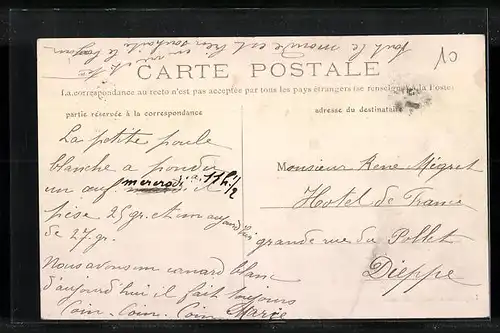 tout le monde est bien souhaite le bonjour
10
CARTE POSTALE
La correspondance au recto n'est pas acceptée par tous les pays étrangers (se renseigner à la Poste)
partie réservée à la correspondance
adresse du destinataire
La petite poule
blanche a pondu
un œuf mercredi a 11 h 1/2 il
pèse 25 gr. et un aujourd'hui
de 27 gr.
Nous avons un canard blanc
d'aujourd'hui il fait toujours
Coin. Coin. Coin. Marie
Monsieur René Mégret
Hotel de France
grande rue du Pollet
Dieppe